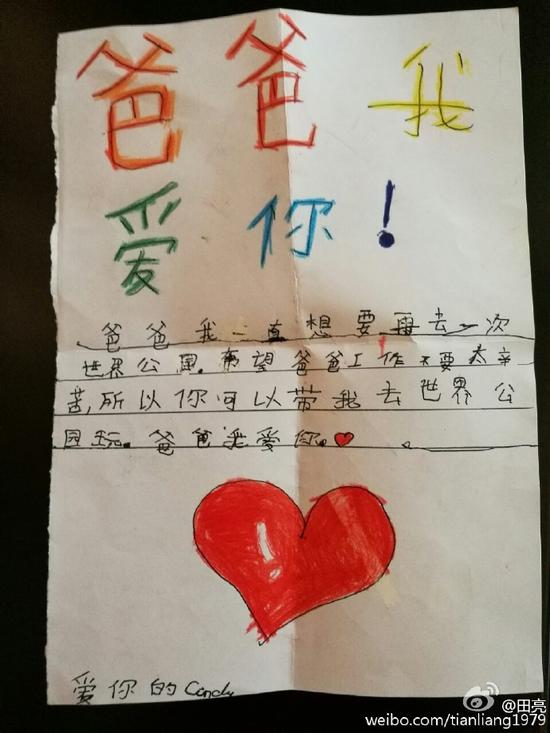 爸爸我
爱你！
爸爸我一直想要再去一次
世界公园。希望爸爸工作不要太辛
苦，所以你可以带我去世界公
园玩。爸爸我爱你。
爱你的Candy
@田亮
weibo.com/tianliang1979